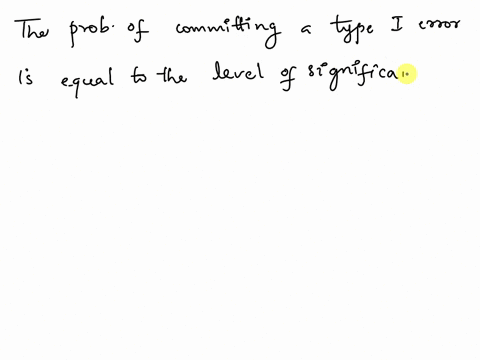 The prob. of committing a type I error
is equal to the level of significa